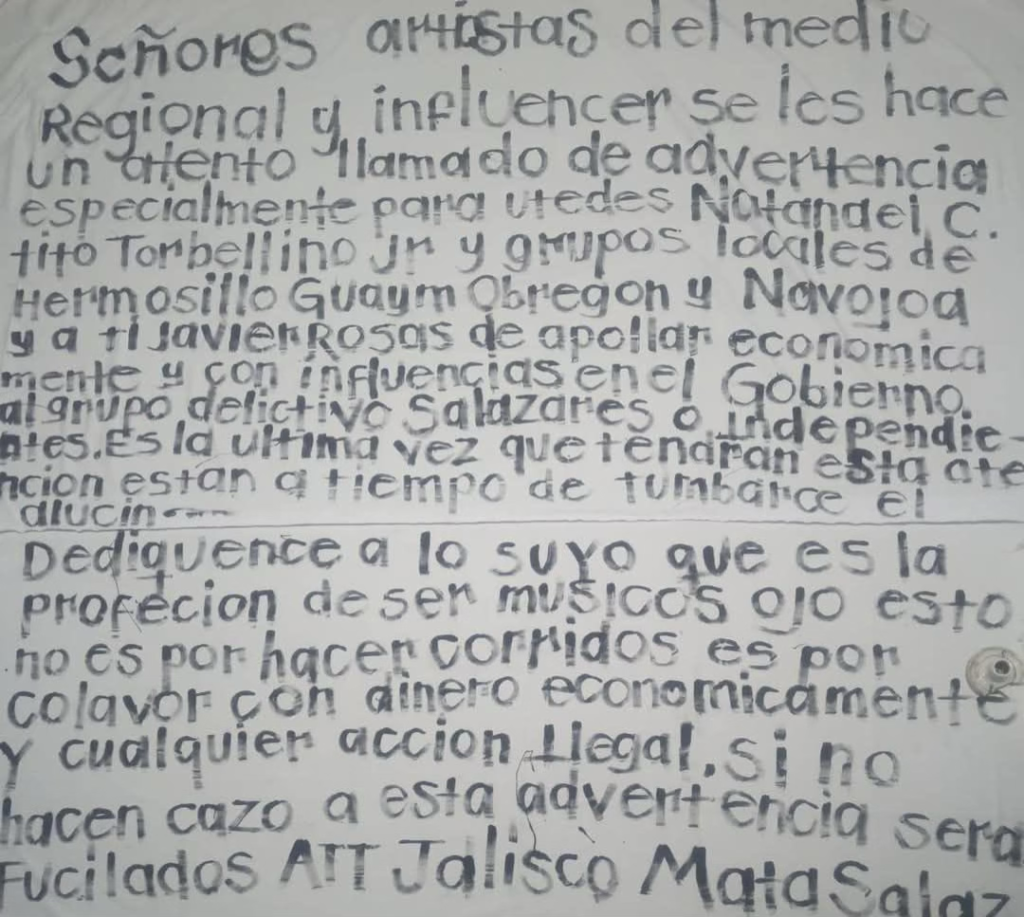 Señores artistas del medio
Regional y influencer se les hace
un atento llamado de advertencia
especialmente para utedes Natandel C.
tito Torbellino Jr y grupos locales de
Hermosillo Guaym Obregon y Navojoa
y a ti Javier Rosas de apollar economica
mente y con influencias en el Gobierno.
al grupo delictivo Salazares o Independie-
ntes. Es la ultima vez que tendran esta ate
ncion estan a tiempo de tumbarce el
alucin----
Dediquence a lo suyo que es la
profecion de ser musicos ojo esto
no es por hacer corridos es por
colavor con dinero economicamente
Y cualquier accion Ilegal, si no
hacen cazo a esta advertencia sera
Fucilados ATT Jalisco Mata Salaz